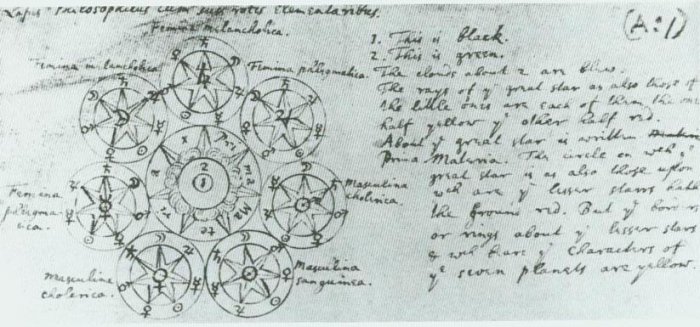 Lapis Philosophicus cum suis rotis elementaribus.
(A:1)
Femina melancholica.
Femina melancholica
Femina phlegmatica.
Femina
phlegma
tica.
Masculina
cholerica.
Masculina
cholerica.
Masculina
sanguinea.
1
2
1. This is black.
2. This is green.
The clouds about 2 are blew.
The rays of ye great star as also those of
the little ones are each of them the one
half yellow ye other half red.
About ye great star is written
Prima Materia. The circle on wch ye
great star is as also those upon
wch are ye lesser stars have
the ground red. But ye borders
or rings about ye lesser stars
& wch bear ye characters of
ye seven planets are yellow.